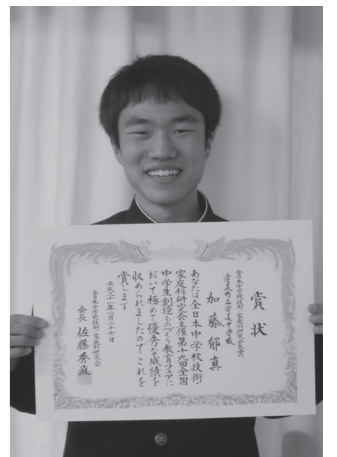 賞状
加藤郁真
あなたは全日本中学校技術・
家庭科研究会主催第十九回全国
中学生創造ものづくり教育フェアに
おいて極めて優秀な成績を
収められましたのでこれを
賞します
会長 佐藤秀直